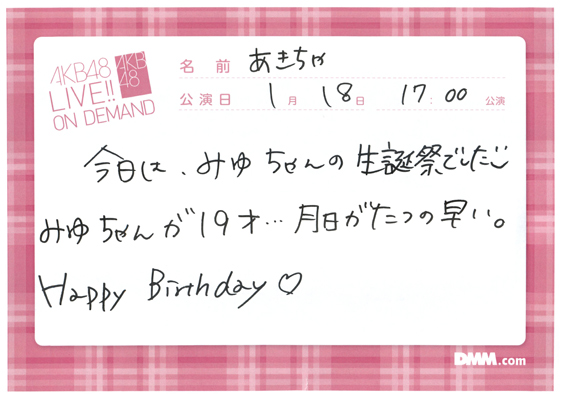 AKB48
LIVE!!
ON DEMAND
AKB
48
名前 あきちゃ
公演日 1月 18日 17:00 公演
今日は、みゆちゃんの生誕祭でした
みゆちゃんが19才…月日がたつの早い。
Happy Birthday♡
DMM.com